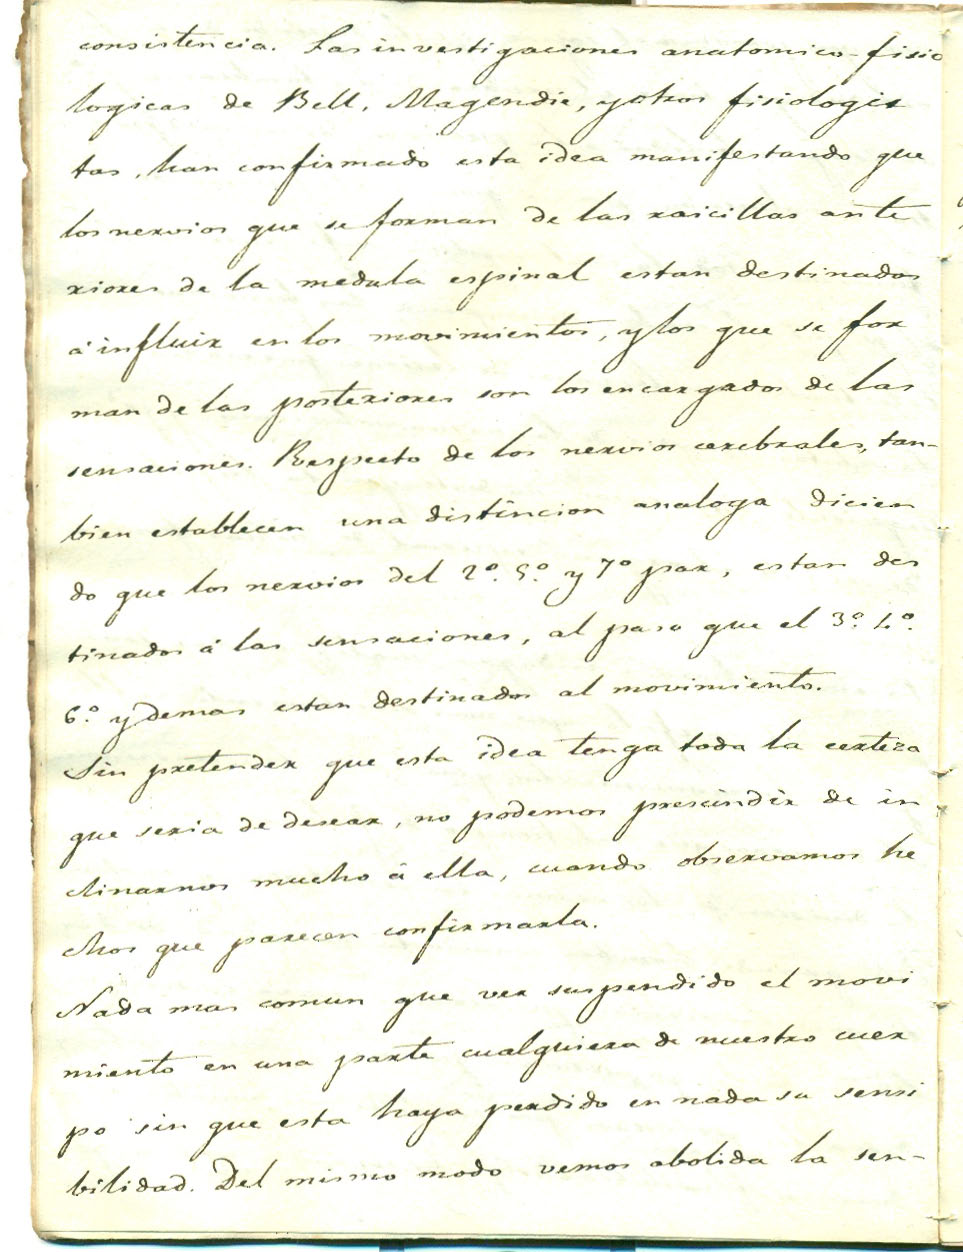 consistencia. Las investigaciones anatomico-fisio
logicas de Bell, Magendie, y otros fisiologis
tas, han confirmado esta idea manifestando que
los nervios que se forman de las raicillas ante
riores de la medula espinal estan destinados
á influir en los movimientos, y los que se for
man de las posteriores son los encargados de las
sensaciones. Respecto de los nervios cerebrales, tan-
bien establecen una distincion analoga dicien
do que los nervios del 2º. 5º. y 7º par, estan des
tinados á las sensaciones, al paso que el 3º. 4º.
6.º y demas estan destinados al movimiento.
Sin pretender que esta idea tenga toda la certeza
que seria de desear, no podemos prescindir de in
clinarnos mucho á ella, cuando observamos he
chos que parecen confirmarla.
Nada mas comun que ver suspendido el movi
miento en una parte cualquiera de nuestro cuer
po sin que esta haya perdido en nada su sensi
bilidad. Del mismo modo vemos abolida la sen-